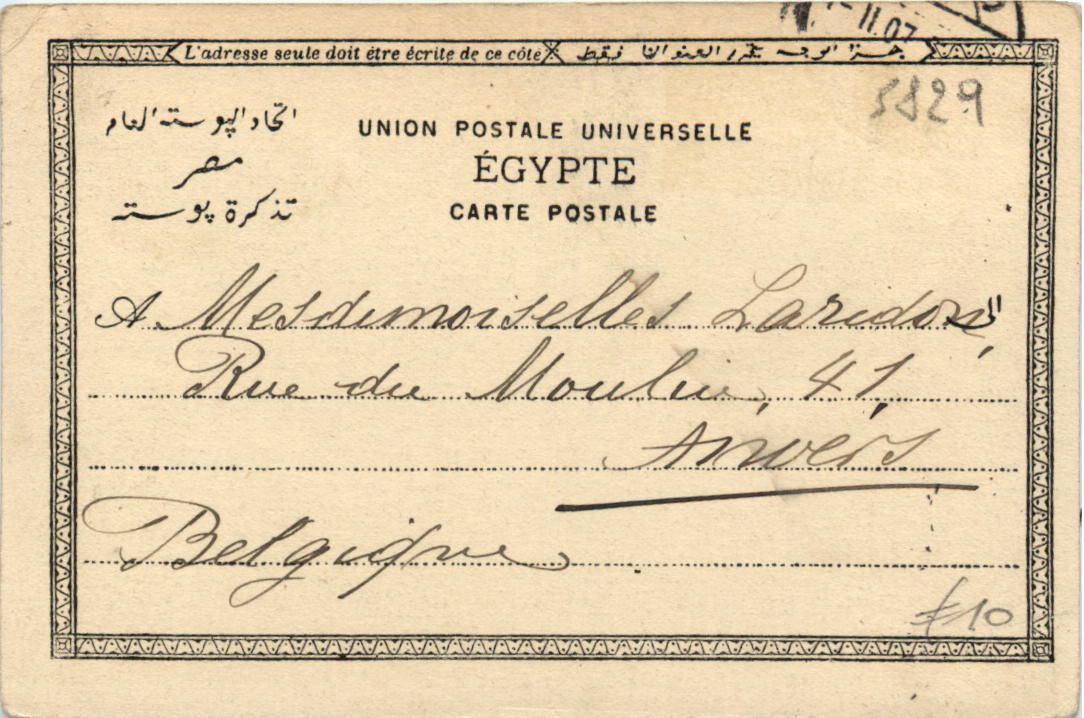 II.07
L'adresse seule doit être écrite de ce côté
جهة الوجه تحرر العنوان فقط
5829
اتحاد البوسته العام
UNION POSTALE UNIVERSELLE
مصر
ÉGYPTE
تذكرة بوسته
CARTE POSTALE
A Mesdemoiselles Laridon,
Rue du Moulin, 41,
Anvers
Belgique
£10